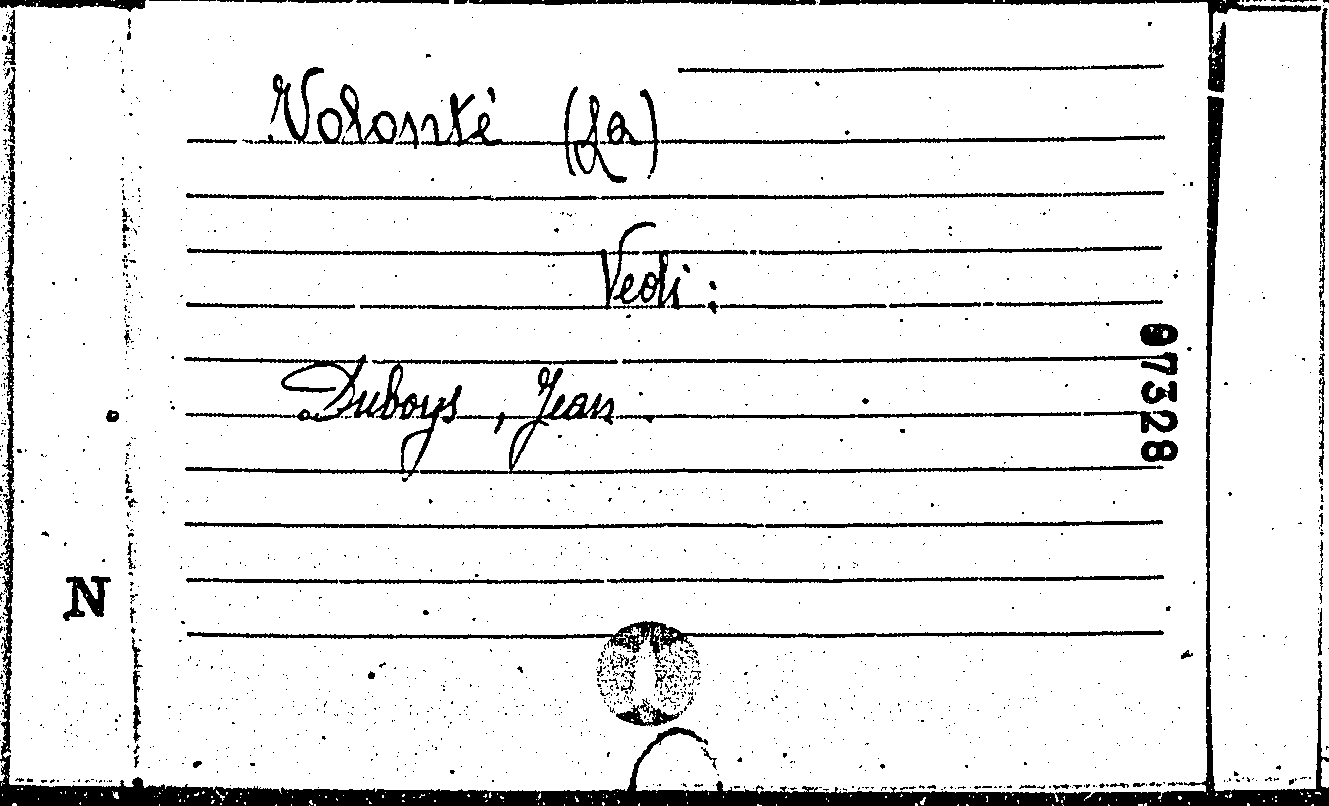 Volonté (La)
Vedi:
Duboys, Jean.
97328
N